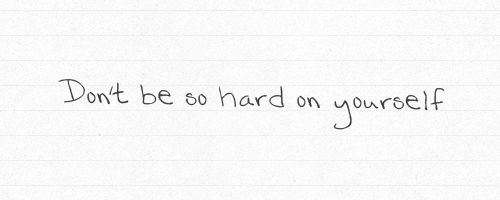 Don't be so hard on yourself